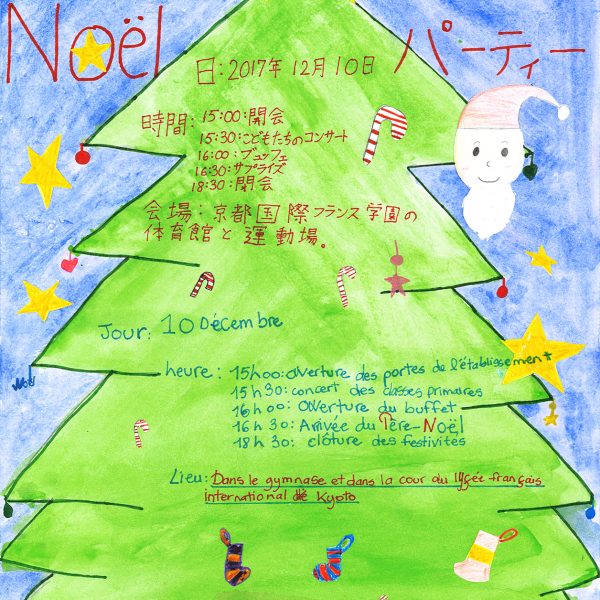 Noël パーティー
日:2017年12月10日
時間:15:00:開会
15:30:こどもたちのコンサート
16:00:ブュッフェ
16:30:サプライズ
18:30:閉会
会場:京都国際フランス学園の
体育館と運動場。
Jour: 10 Décembre
heure: 15h00: overture des portes de l'établissement
15h30: concert des classes primaires
16h00: Overture du buffet
16h30: Arrivée du Père-Noël
18h30: clôture des festivités
Noël
Lieu: Dans le gymnase et dans la cour du lycée français
international de Kyoto